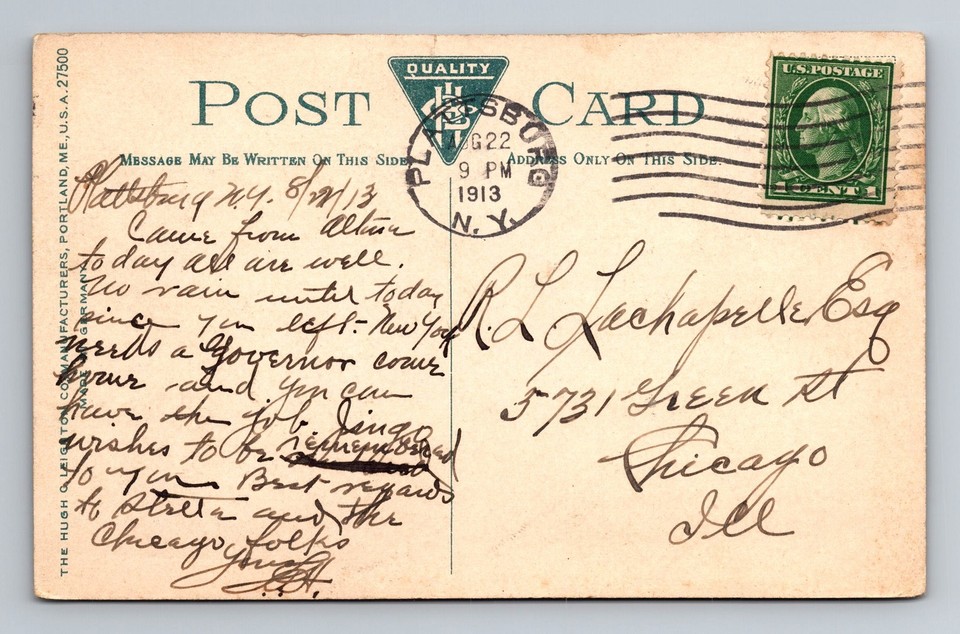 POST CARD
QUALITY
MESSAGE MAY BE WRITTEN ON THIS SIDE.
ADDRESS ONLY ON THIS SIDE.
U.S. POSTAGE
1 CENT 1
PLATTSBURG
AUG 22
9 PM
1913
N. Y.
Plattsburg N.Y. 8/22/13
Came from Altona
today All are well.
No rain until today
since you left - New York
needs a Governor come
home and you can
have the job. Jingo
wishes to be remembered
to you Best regards
to Stella and the
Chicago folks
Yours
R. L. Lachapelle, Esq
5731 Green St
Chicago
Ill
THE HUGH C. LEIGHTON CO., MANUFACTURERS, PORTLAND, ME., U.S.A. 27500
MADE IN GERMANY